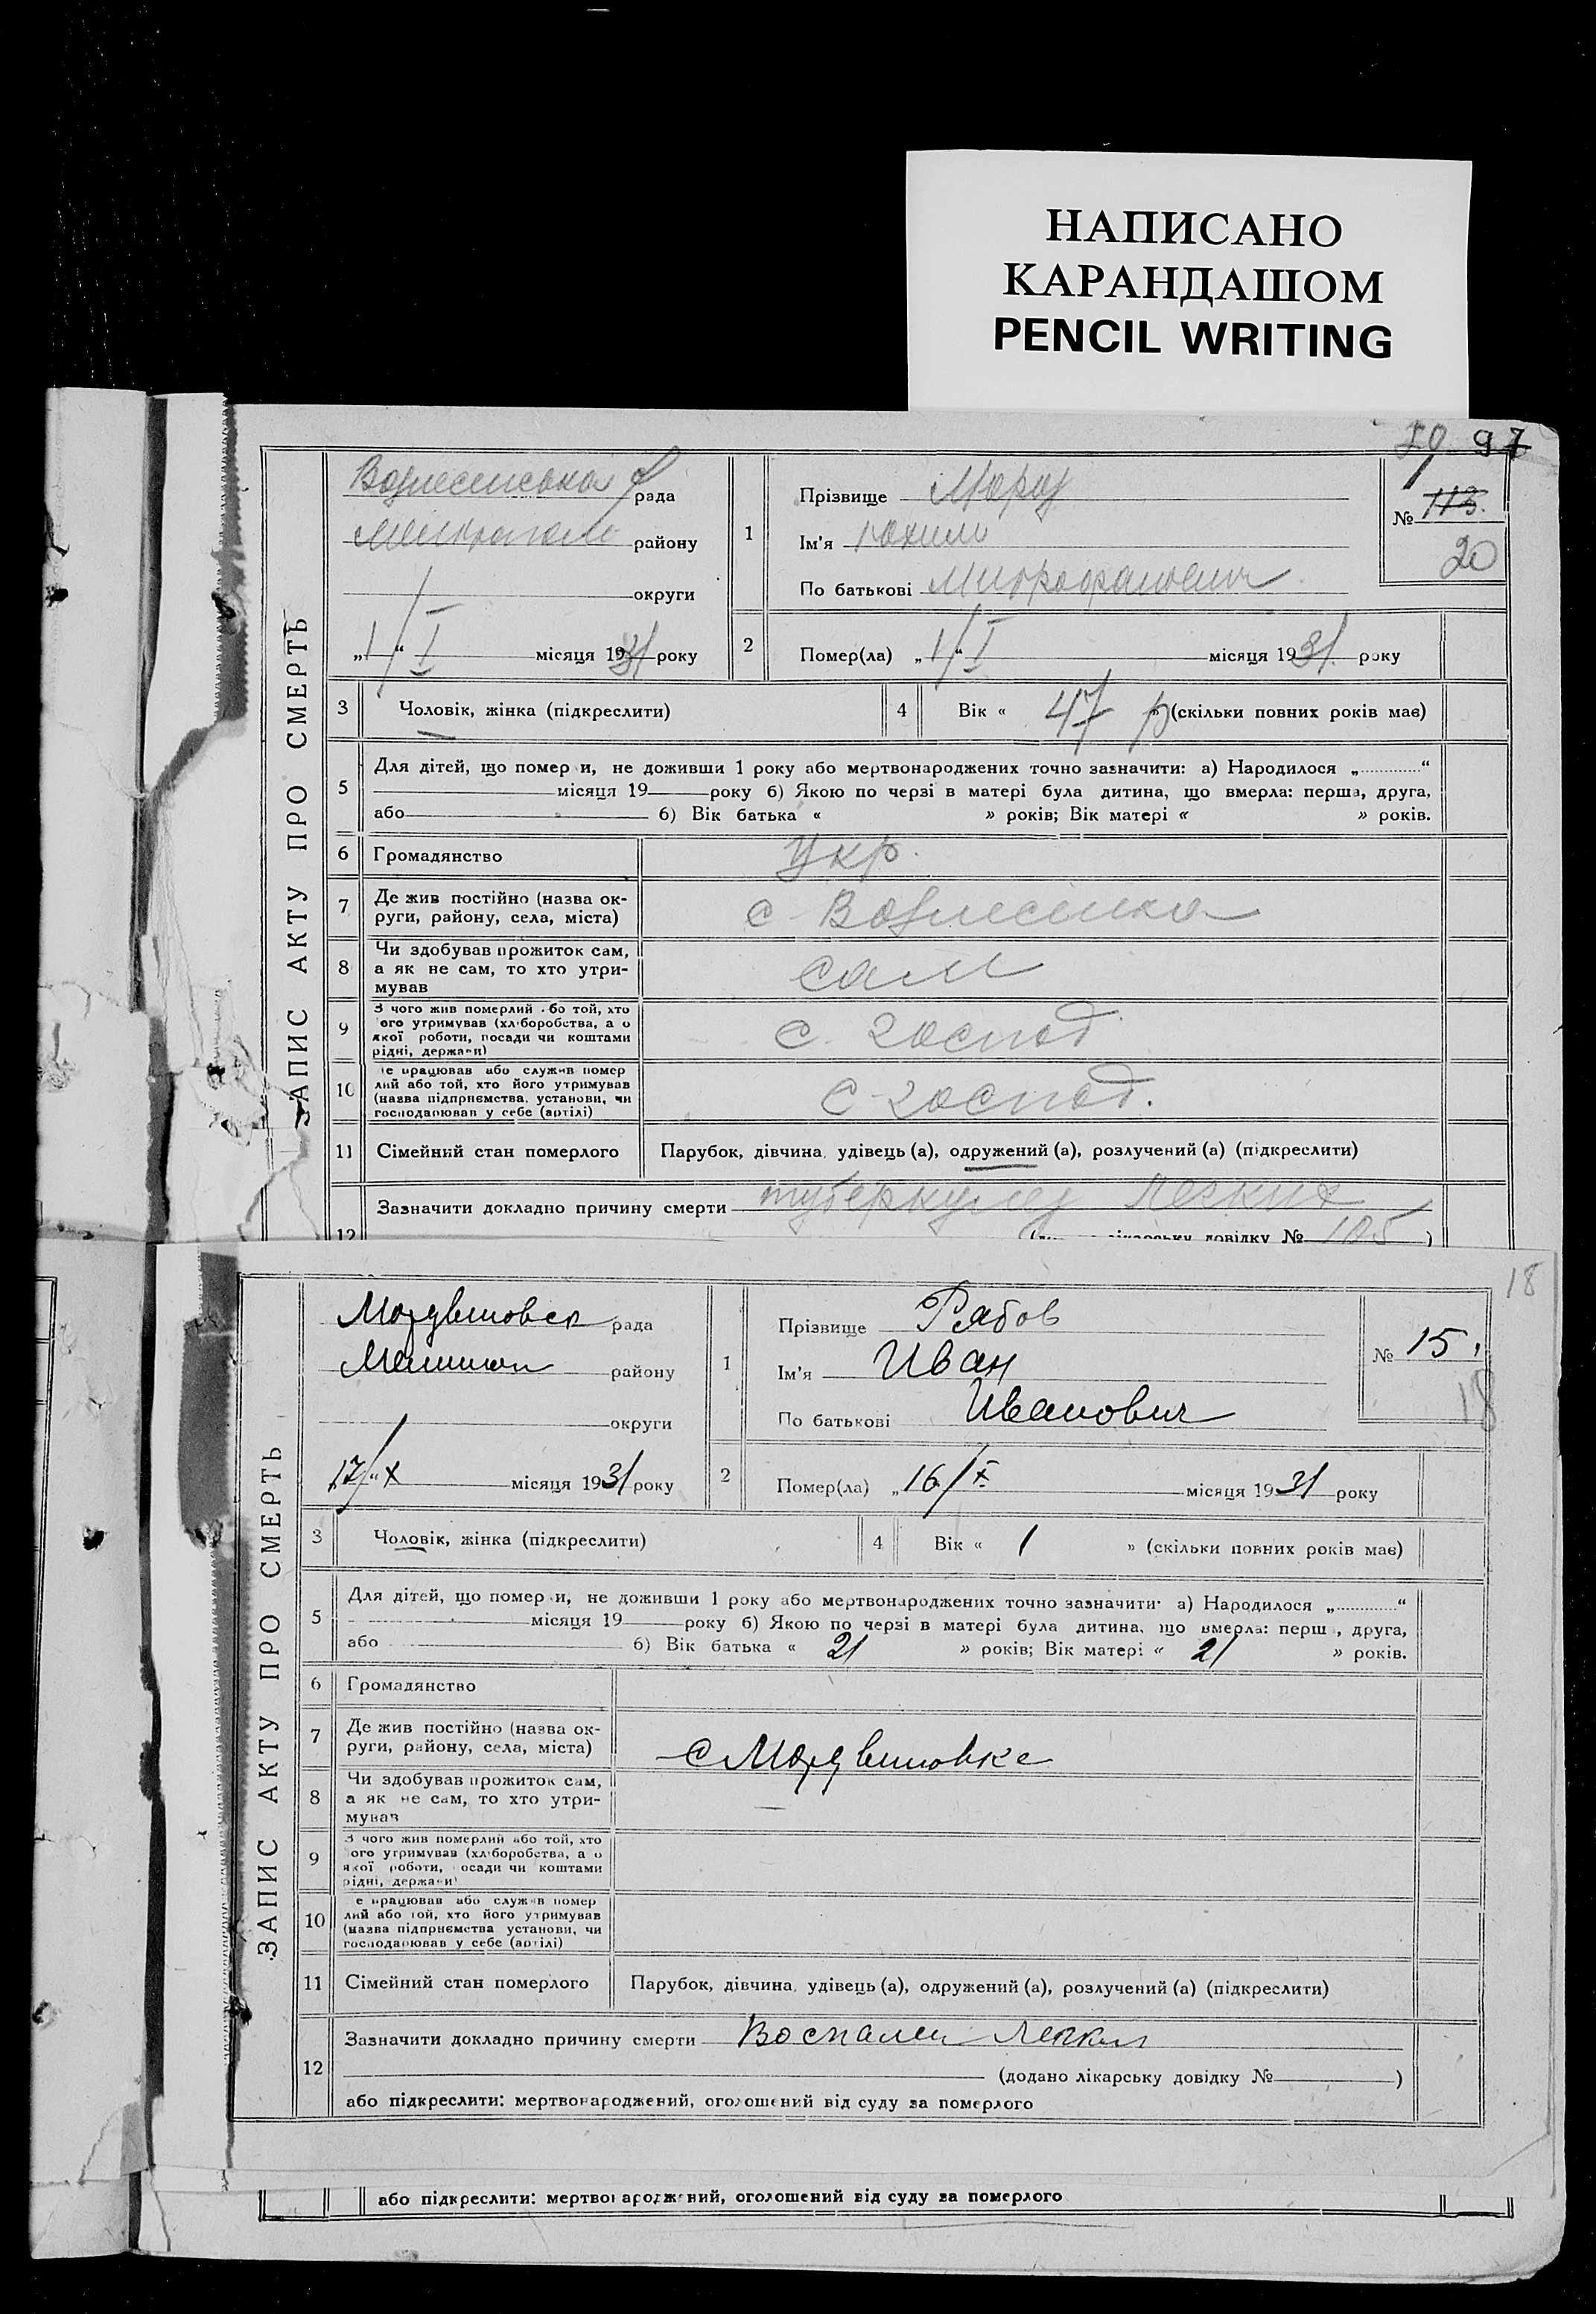 НАПИСАНО
КАРАНДАШОМ
PENCIL WRITING
97
ЗАПИС АКТУ ПРО СМЕРТЬ
Вознесенська рада
району
округи
„1“ I місяця 1931 року
1
Прізвище Мороз
Ім'я
По батькові Митрофанович
№ 113.
20
2 Помер(ла) „1“ I місяця 1931 року
3 Чоловік, жінка (підкреслити)
4 Вік « 47 р» (скільки повних років має)
5 Для дітей, що помер и, не доживши 1 року або мертвонароджених точно зазначити: а) Народилося „ “
місяця 19 року б) Якою по черзі в матері була дитина, що вмерла: перша, друга,
або б) Вік батька « » років; Вік матері « » років.
6 Громадянство Укр.
7 Де жив постійно (назва ок-
руги, району, села, міста) с Вознесенка
8 Чи здобував прожиток сам,
а як не сам, то хто утри-
мував сам
9 З чого жив померлий бо той, хто
ого утримував (хліборобства, а о
якої роботи, посади чи коштами
рідні, держави) с. господ.
10 е працював або служив помер
лий або той, хто його утримував
(назва підприємства, установи, чи
господарював у себе (артілі) с-господ.
11 Сімейний стан померлого Парубок, дівчина, удівець (а), одружений (а), розлучений (а) (підкреслити)
12 Зазначити докладно причину смерти туберкулез легких
довідку № 105 )
18
ЗАПИС АКТУ ПРО СМЕРТЬ
Мордвиновск рада
району
округи
17/“X місяця 1931 року
1
Прізвище Рябов
Ім'я Иван
По батькові Иванович
№ 15.
18
2 Помер(ла) „16/X місяця 1931 року
3 Чоловік, жінка (підкреслити)
4 Вік « 1 » (скільки повних років має)
5 Для дітей, що помер и, не доживши 1 року або мертвонароджених точно зазначити: а) Народилося „ “
місяця 19 року б) Якою по черзі в матері була дитина, що вмерла: перш , друга,
або б) Вік батька « 21 » років; Вік матері « 21 » років.
6 Громадянство
7 Де жив постійно (назва ок-
руги, району, села, міста) с Мордвиновке
8 Чи здобував прожиток сам,
а як не сам, то хто утри-
мував
9 З чого жив померлий або той, хто
ого утримував (хліборобства, а о
якої роботи, осади чи коштами
рідні, держави)
10 е працював або служив помер
лий або той, хто його утримував
(назва підприємства установи, чи
господарював у себе (артілі)
11 Сімейний стан померлого Парубок, дівчина, удівець (а), одружений (а), розлучений (а) (підкреслити)
12 Зазначити докладно причину смерти Воспален легких
(додано лікарську довідку № )
або підкреслити: мертвонароджений, оголошений від суду за померлого
або підкреслити: мертвонароджений, оголошений від суду за померлого